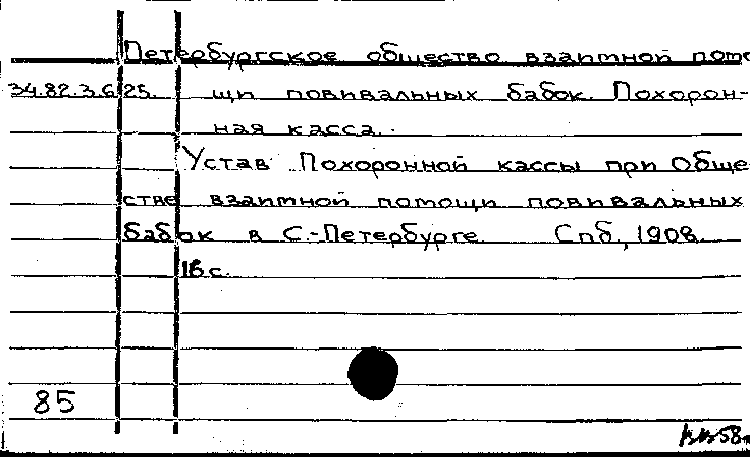 Петербургское общество взаимной помо
34.82.3.6 25. щи повивальных бабок. Похорон-
ная касса.
Устав Похоронной кассы при Обще
стве взаимной помощи повивальных
бабок в С.-Петербурге. Спб., 1908.
16 с.
85